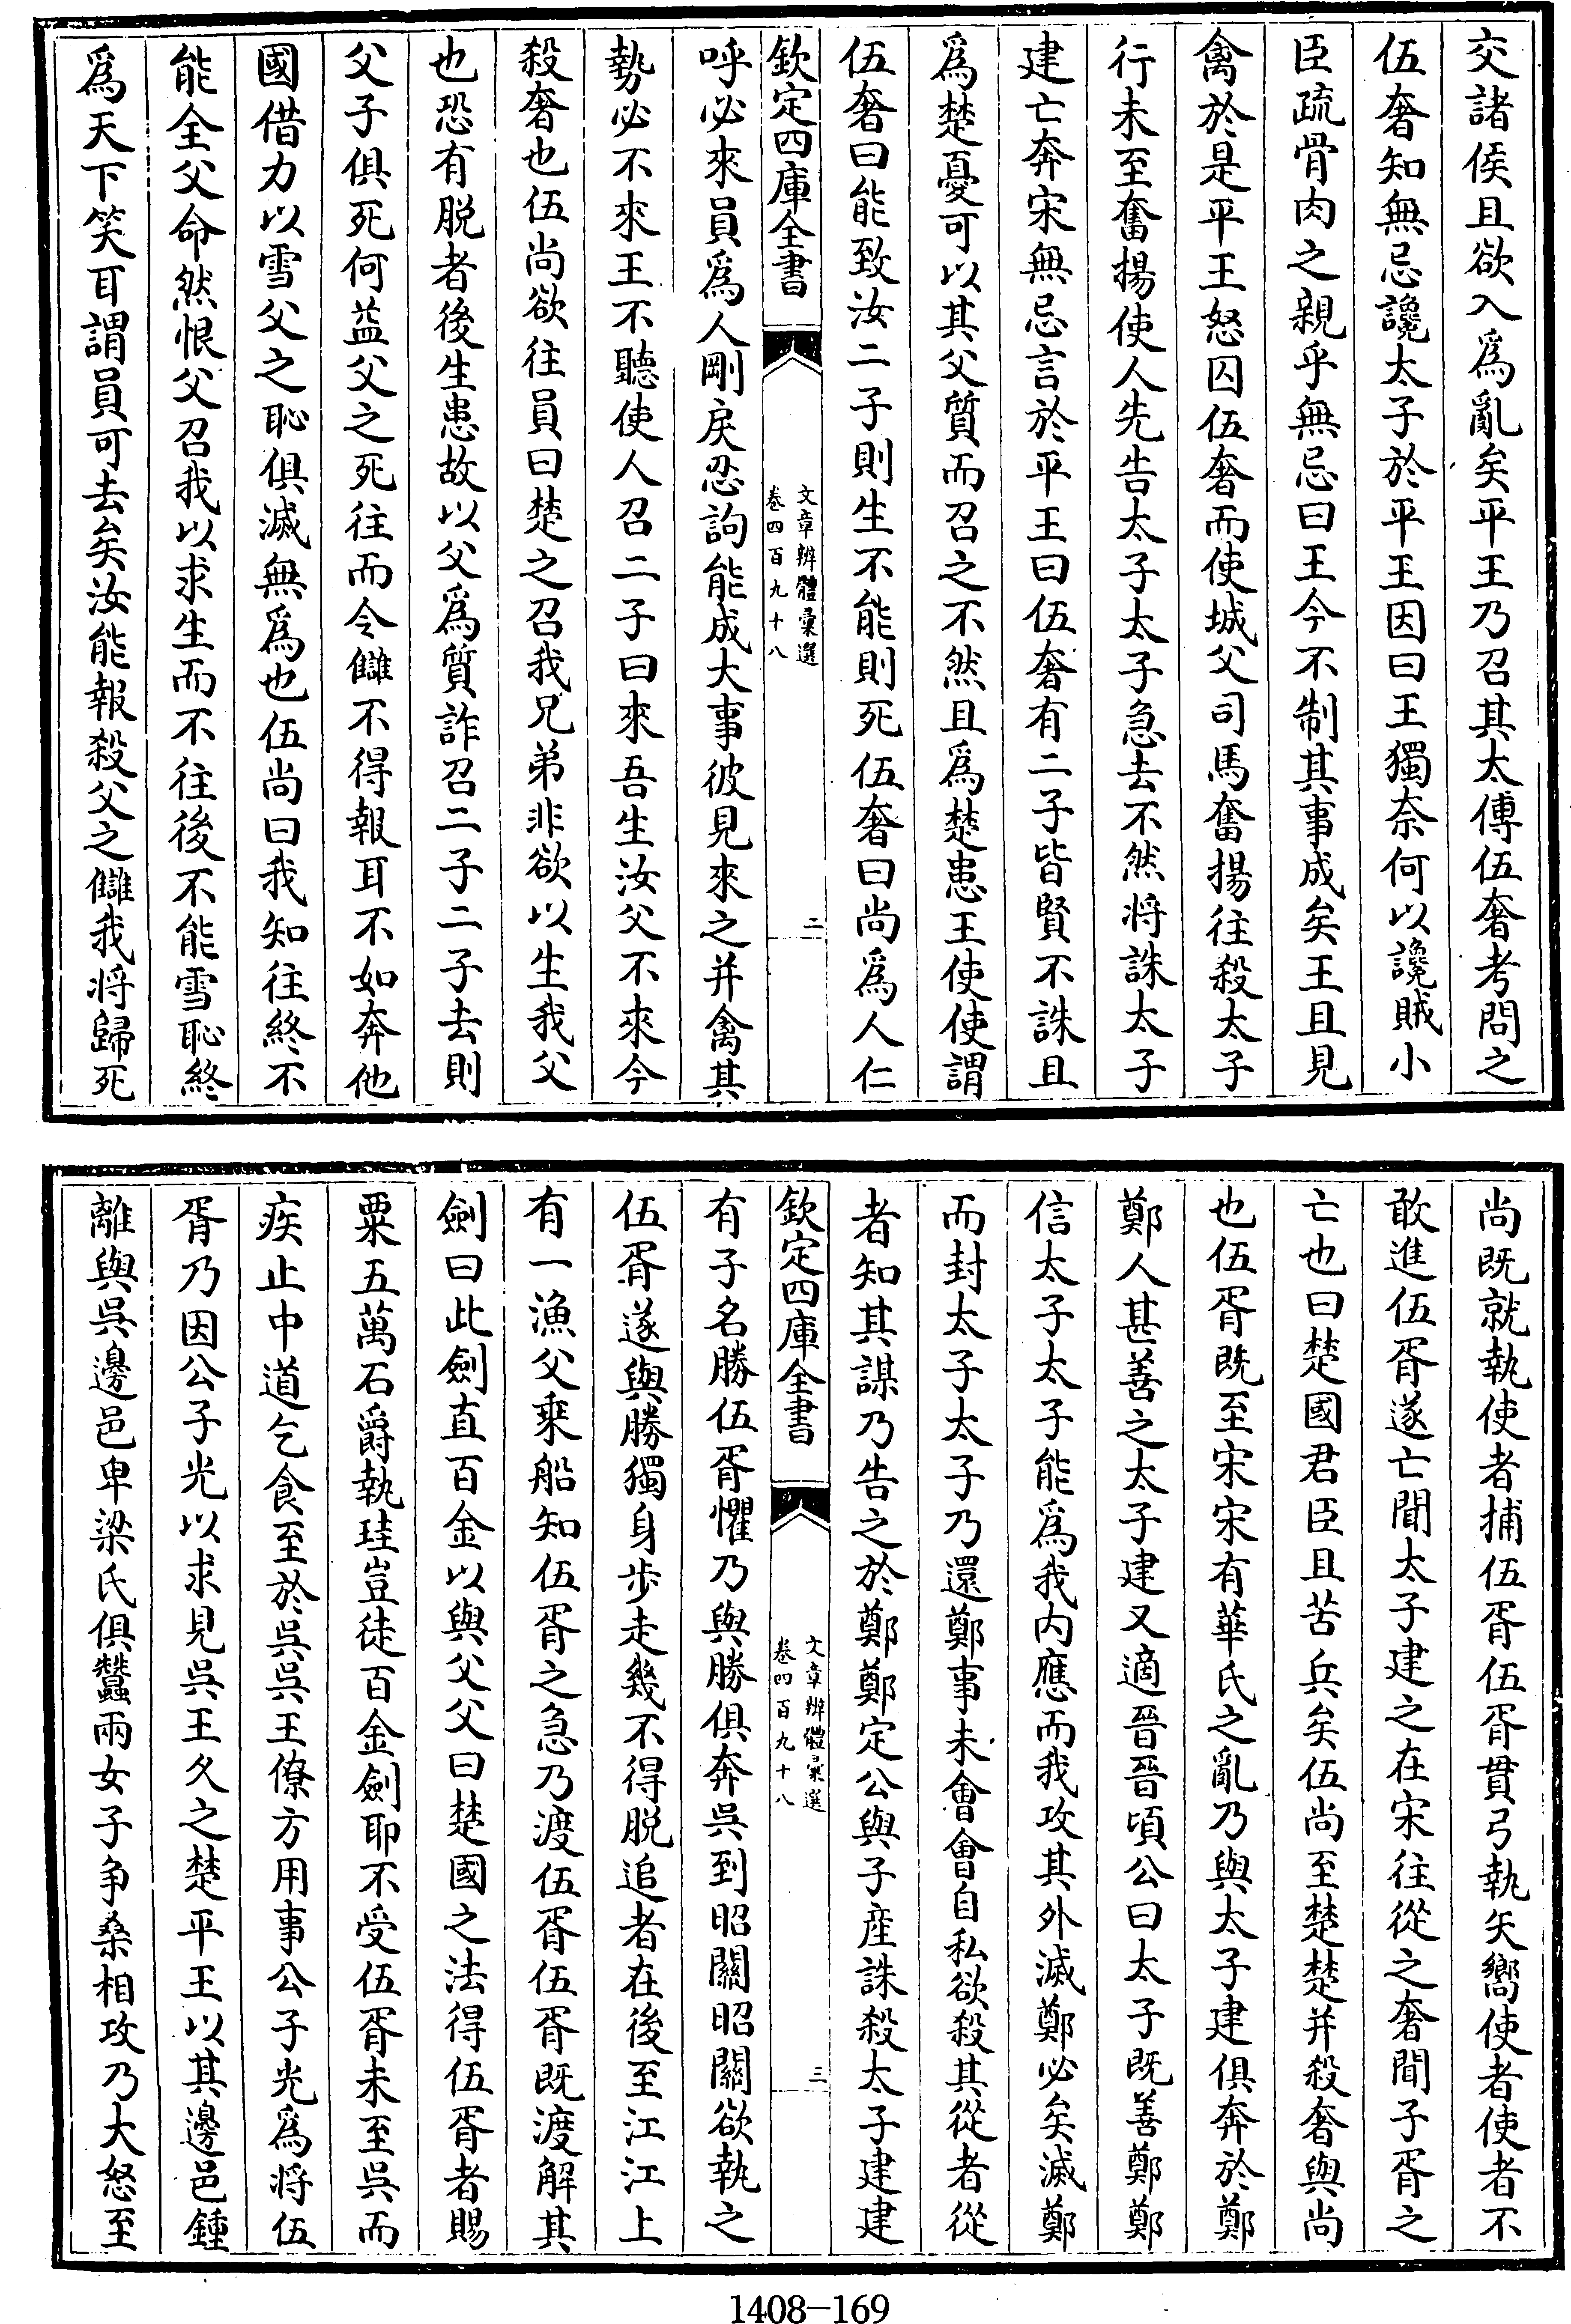 交諸侯且欲入爲亂矣平王乃召其太傅伍奢考問之
伍奢知無忌讒太子於平王因曰王獨奈何以讒賊小
臣疏骨肉之親乎無忌曰王今不制其事成矣王且見
禽於是平王怒囚伍奢而使城父司馬奮揚往殺太子
行未至奮揚使人先告太子太子急去不然將誅太子
建亡奔宋無忌言於平王曰伍奢有二子皆賢不誅且
爲楚憂可以其父質而召之不然且爲楚患王使使謂
伍奢曰能致汝二子則生不能則死伍奢曰尚爲人仁
欽定四庫全書
文章辨體彙選
卷四百九十八
二
呼必來員爲人剛戾忍訽能成大事彼見來之并禽其
勢必不來王不聽使人召二子曰來吾生汝父不來今
殺奢也伍尚欲往員曰楚之召我兄弟非欲以生我父
也恐有脫者後生患故以父爲質詐召二子二子去則
父子俱死何益父之死往而令讎不得報耳不如奔他
國借力以雪父之恥俱滅無爲也伍尚曰我知往終不
能全父命然恨父召我以求生而不往後不能雪恥終
爲天下笑耳謂員可去矣汝能報殺父之讎我將歸死
尚既就執使者捕伍胥伍胥貫弓執矢嚮使者使者不
敢進伍胥遂亡聞太子建之在宋往從之奢聞子胥之
亡也曰楚國君臣且苦兵矣伍尚至楚楚并殺奢與尚
也伍胥既至宋宋有華氏之亂乃與太子建俱奔於鄭
鄭人甚善之太子建又適晉晉頃公曰太子既善鄭鄭
信太子太子能爲我内應而我攻其外滅鄭必矣滅鄭
而封太子太子乃還鄭事未會會自私欲殺其從者從
者知其謀乃告之於鄭鄭定公與子産誅殺太子建建
欽定四庫全書
文章辨體彙選
卷四百九十八
三
有子名勝伍胥懼乃與勝俱奔吳到昭關昭關欲執之
伍胥遂與勝獨身步走幾不得脫追者在後至江江上
有一漁父乘船知伍胥之急乃渡伍胥伍胥既渡解其
劍曰此劍直百金以與父父曰楚國之法得伍胥者賜
粟五萬石爵執珪豈徒百金劍耶不受伍胥未至吳而
疾止中道乞食至於吳吳王僚方用事公子光爲將伍
胥乃因公子光以求見吳王久之楚平王以其邊邑鍾
離與吳邊邑卑梁氏俱蠶兩女子争桑相攻乃大怒至
1408—169